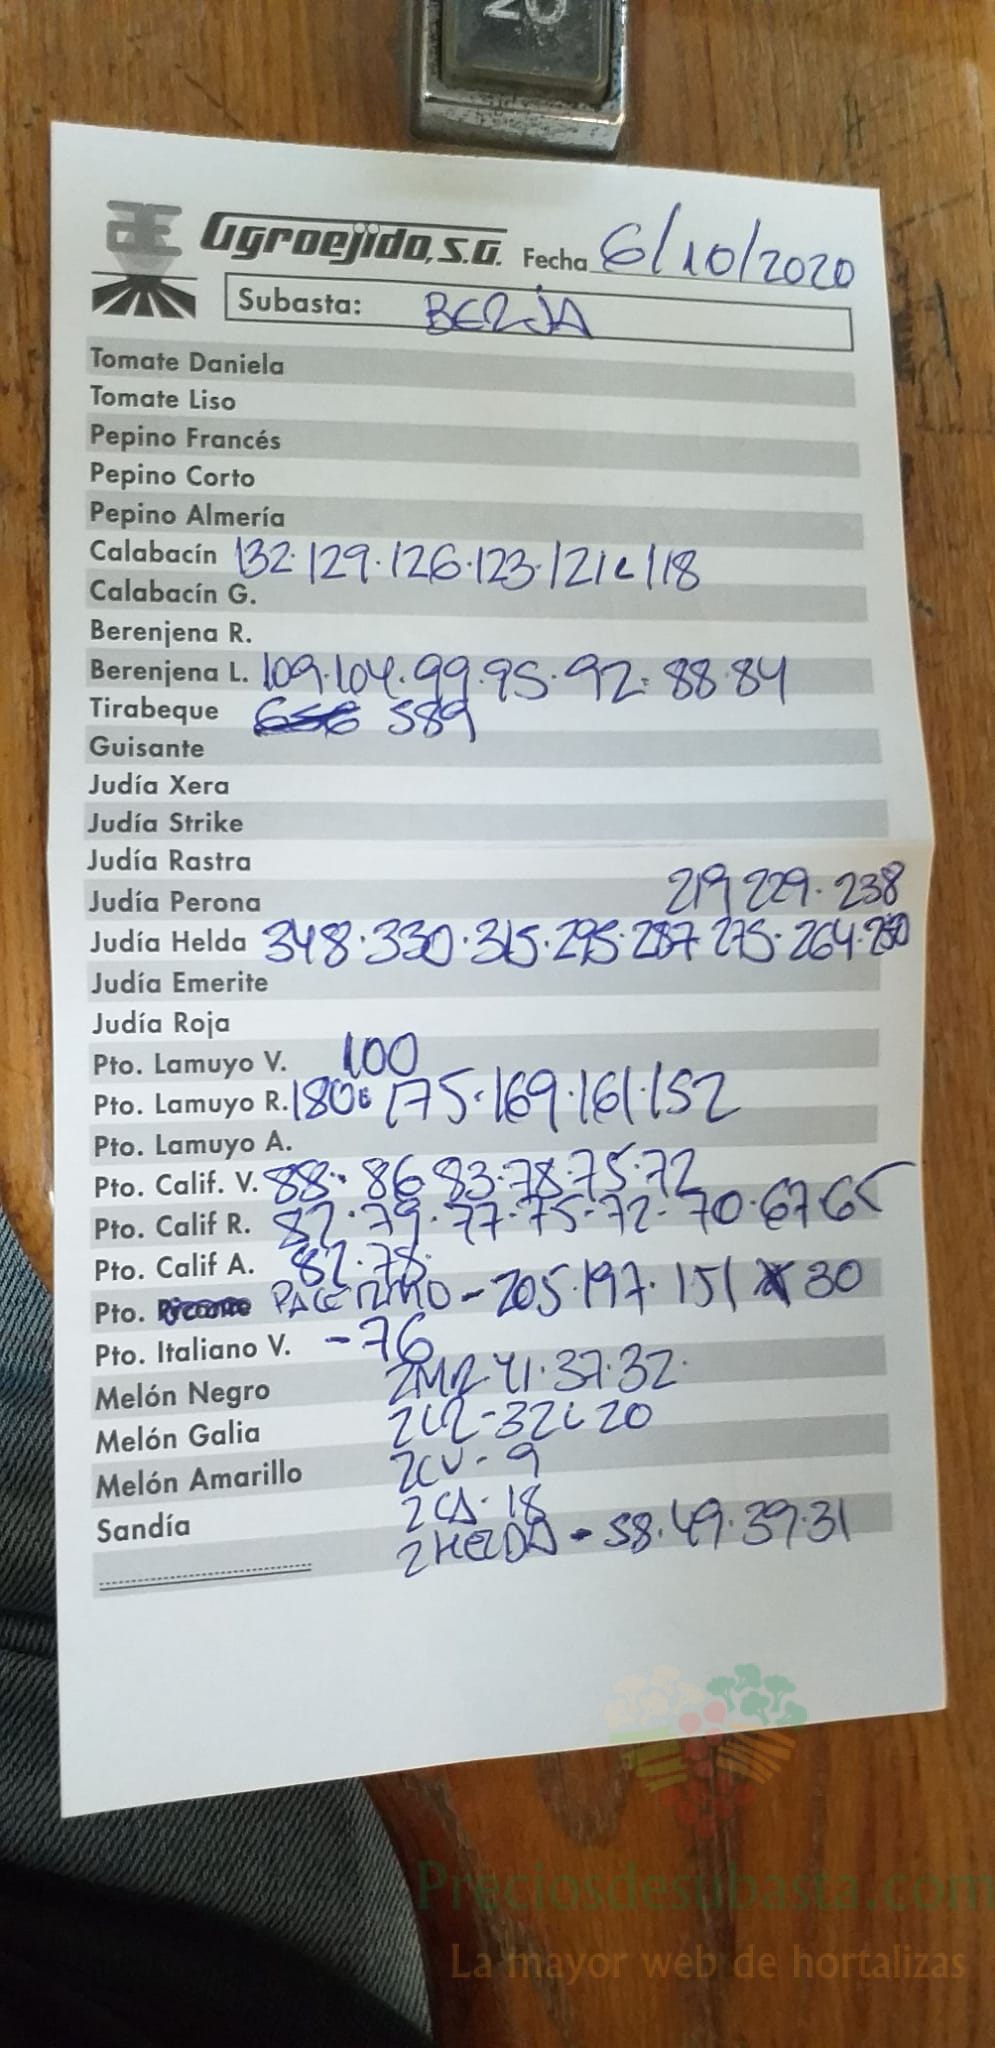 20
Agroejido, S.A. Fecha 6/10/2020
Subasta: BERJA
Tomate Daniela
Tomate Liso
Pepino Francés
Pepino Corto
Pepino Almería
Calabacín 132·129·126·123·121 L 118
Calabacín G.
Berenjena R.
Berenjena L. 109·104·99·95·92·88·84
Tirabeque 589
Guisante
Judía Xera
Judía Strike
Judía Rastra
219 229·238
Judía Perona
Judía Helda 348·330·315·295·287 275·264·250
Judía Emerite
Judía Roja
Pto. Lamuyo V. 100
Pto. Lamuyo R. 180 175·169·161·152
Pto. Lamuyo A.
Pto. Calif. V. 88·86 83·78·75·72
Pto. Calif R. 82·79·77·75-72-70·67 65
Pto. Calif A. 82·78·
Pto. - 205·197·151 30
Pto. Italiano V. -76
2MR 41·37·32·
Melón Negro
Melón Galia 2LR-32 L 20
Melón Amarillo 2CV-9
2CA·18
Sandía
2HELDA - 58·49·39·31
Preciosdesubasta.com
La mayor web de hortalizas